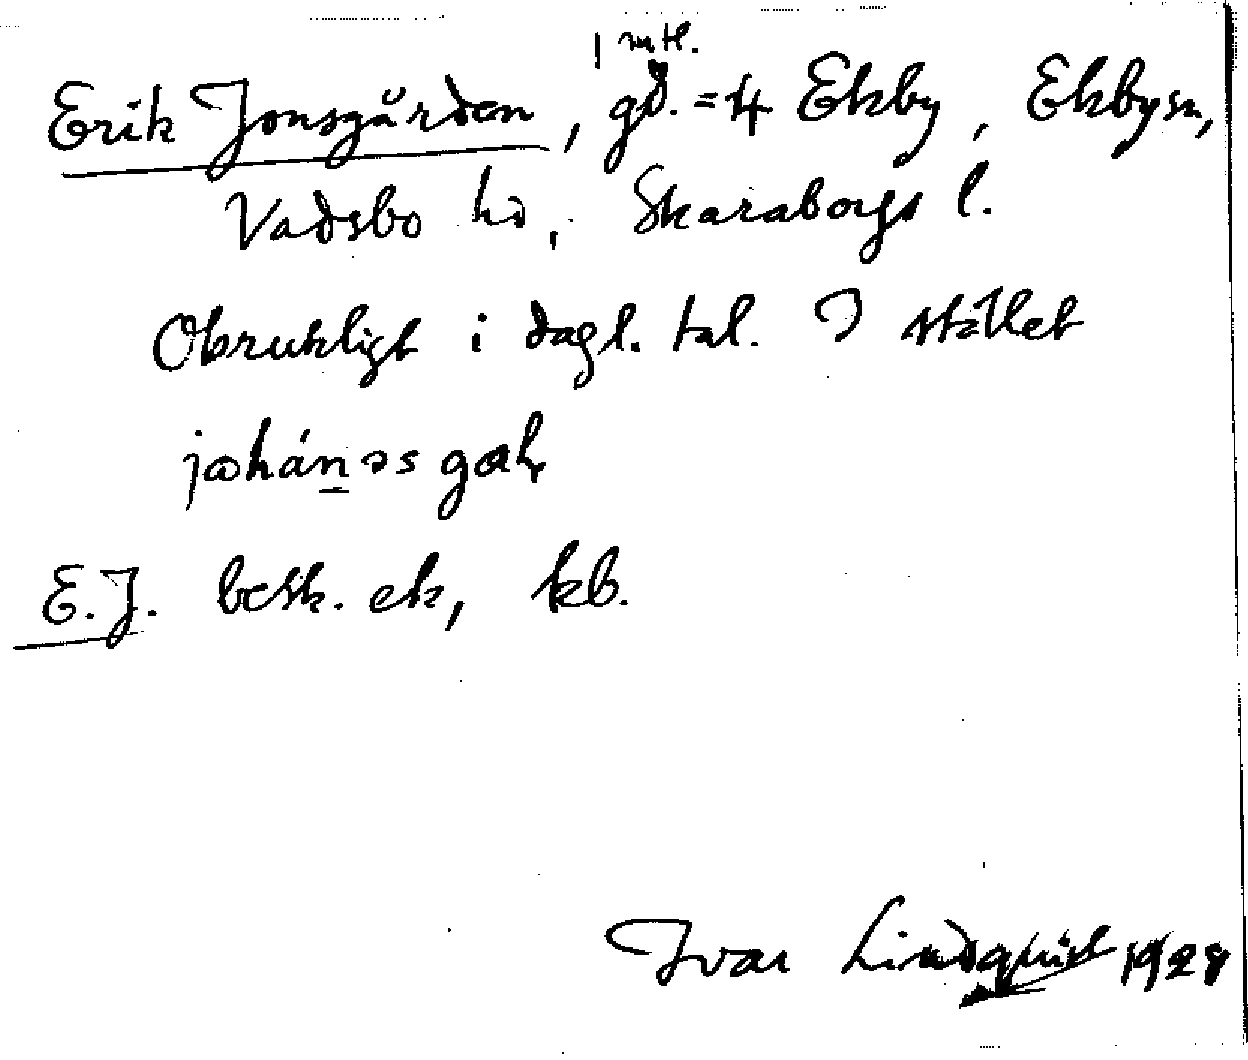 1 mtl.
Erik Jonsgården, gd. = 4 Ekby, Ekby sn,
Vadsbo hd, Skaraborgs l.
Obrukligt i dagl. tal. I stället
johánəs
E.J. besk. ek, kb.
Ivar Lindquist 1928